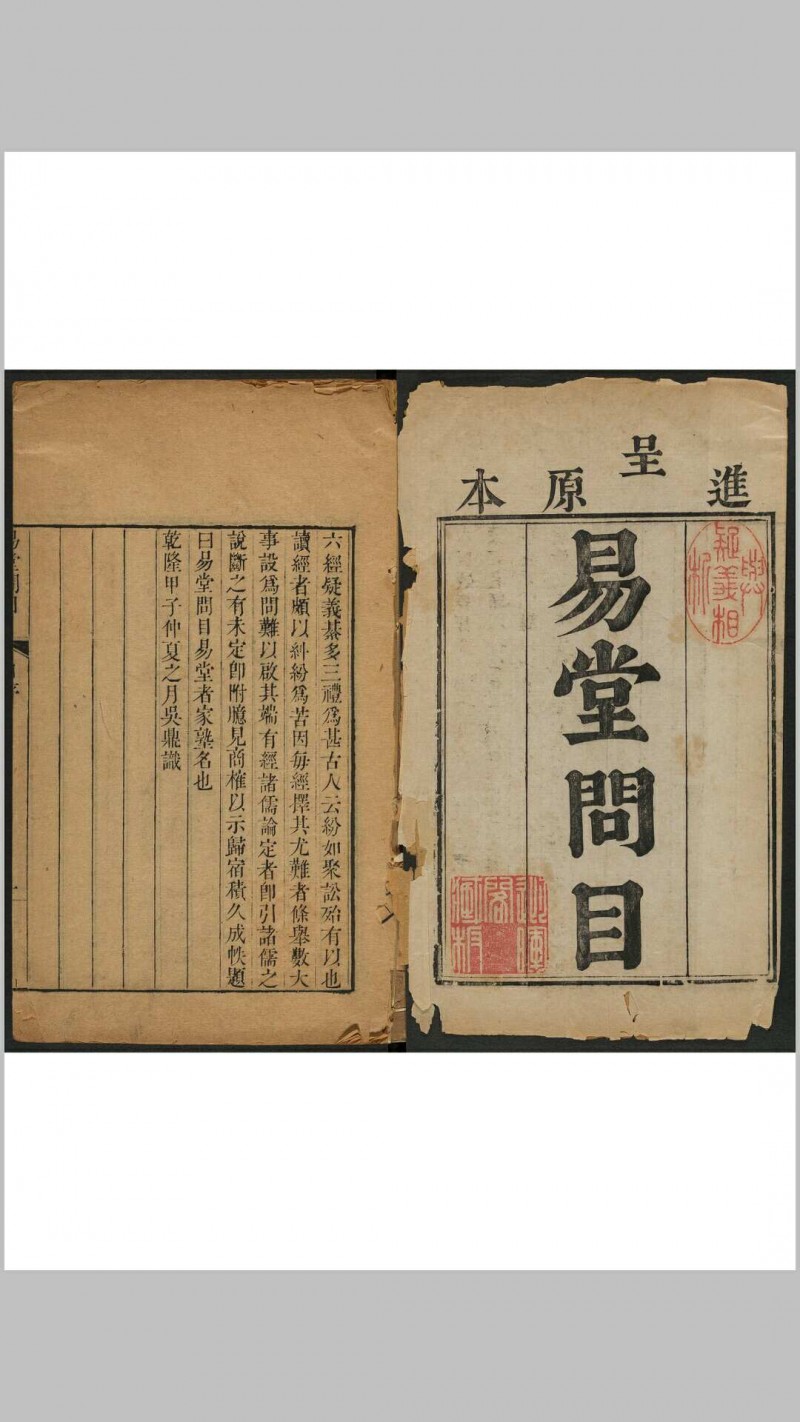 進呈原本
易堂問目
疑義相與析
六經疑義綦多三禮爲甚古人云紛如聚訟殆有以也
讀經者頗以糾紛爲苦因每經擇其尤難者條舉數大
事設爲問難以啟其端有經諸儒論定者卽引諸儒之
說斷之有未定卽附臆見商榷以示歸宿積久成帙題
曰易堂問目易堂者家塾名也
乾隆甲子仲夏之月吳鼎識